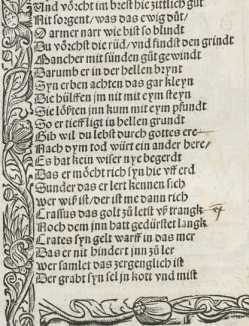 Und vörcht im brest hie zittlich gůt
Nit sorgent/ was das ewig důt/
O armer narr wie bist so blindt
Du vörchst die rüd/ vnd findst den grindt
Mancher mit sünden gůt gewynt
Darumb er in der hellen brynt
Syn erben achten das gar kleyn
Sie hülffen jm nit mit eym steyn
Sie lößten jnn kum mit eym pfundt
So er tieff ligt in hellen grundt
Gib wil du lebst durch gottes ere
Nach dym tod würt ein ander here/
Es hat kein wiser nye begerdt
Das er möcht rich syn hie vff erd
Sunder das er lert kennen sich
wer wiß ist/ der ist me dann rich
Crassus das golt zů letst vß trangk
Noch dem jnn hatt gedürstet langk
Crates syn gelt warff in das mer
Das er nit hindert jnn zů ler
wer samlet das zergenglich ist
Der grabt syn sel in kott vnd mist